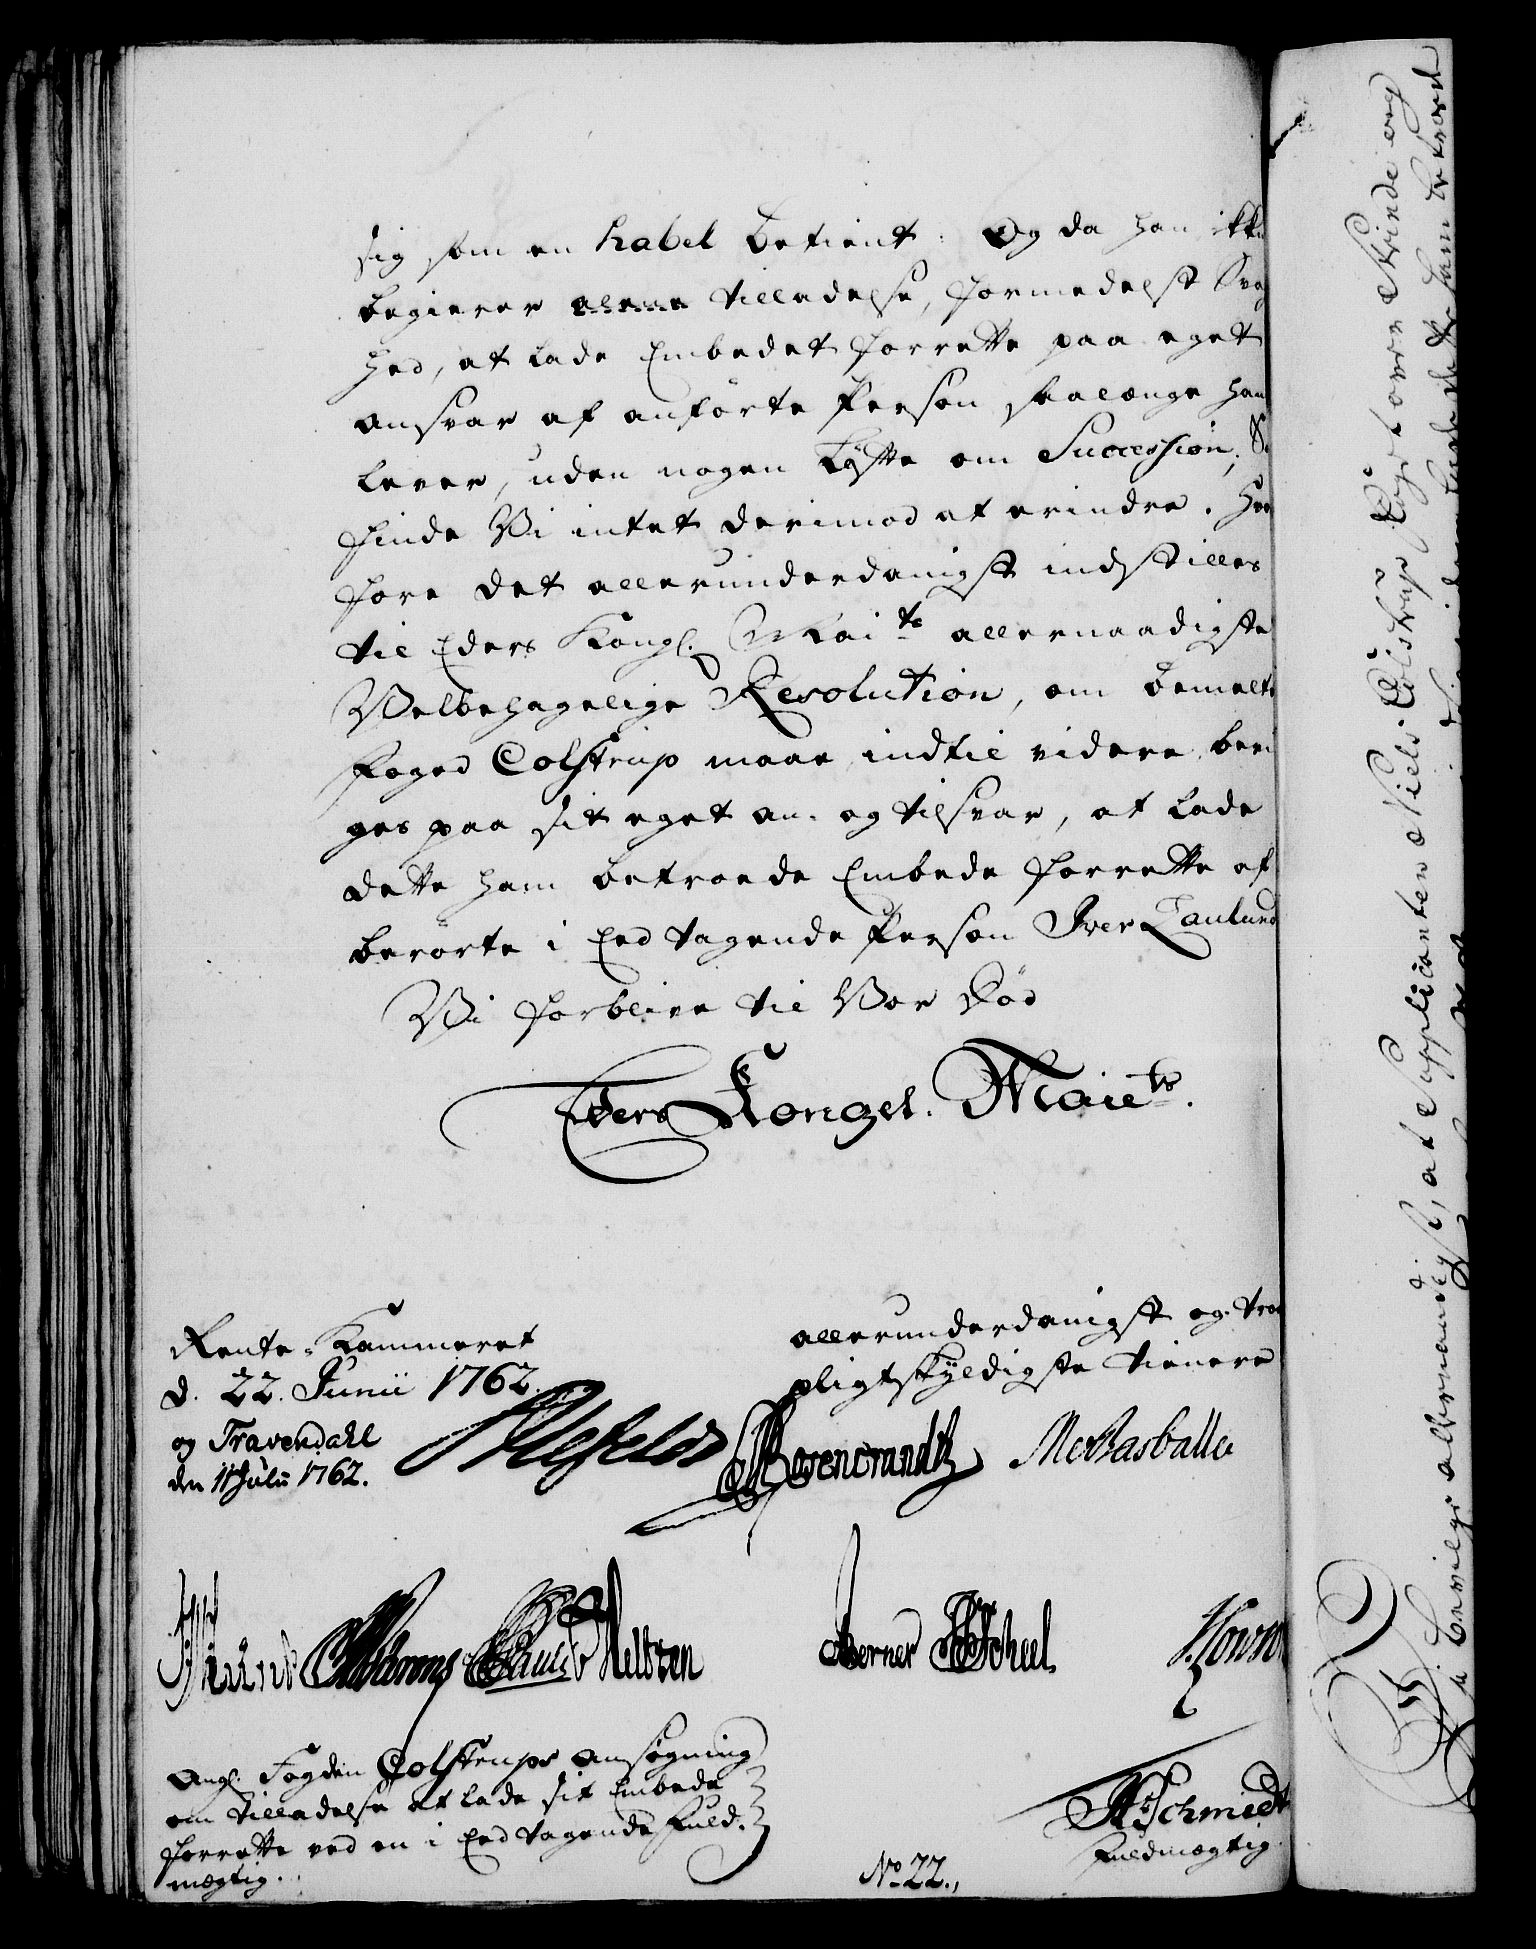 sig som en habel betient. Og da han ikke
begierer alene tilladelse, formedelst Svag
hed, at lade Embedet forrette paa eget
ansvar af anförte Person saalænge han
lever, uden nogen Löfte om Succession, Saa
finde Vi intet derimod at erindre. Her
fore det allerunderdanigst indstilles
til Eders Kongl. Mai.ts allernaadigste
Velbehagelige Resolution, om bemelte
Foged Colstrup maae indtil videre bevil
ges paa sit eget an- og tilsvar, at lade
dette ham betroede Embede forrette af
berörte i Eed tagende Person Iver
Vi forblive til Vor Död
Eders Kongel. Maiets.
allerunderdanigst og troe
pligtskyldigste tienere
Rente-Kammeret
d. 22. Junii 1762.
og Travendahl
den 11 Julii 1762.
Ahlefeldt Rosencrandtz
Berner Scheel
Angl. Fogden Colstrups Ansögning
om tilladelse at lade sit Embede
forrette ved en i Eed tagende Fuld-
mægtig.
Schmidt
Fuldmægtig
No. 22.
Vi bevilge allernaadigst, at Supplicanten Niels Colstrup, Foged over Strinde og